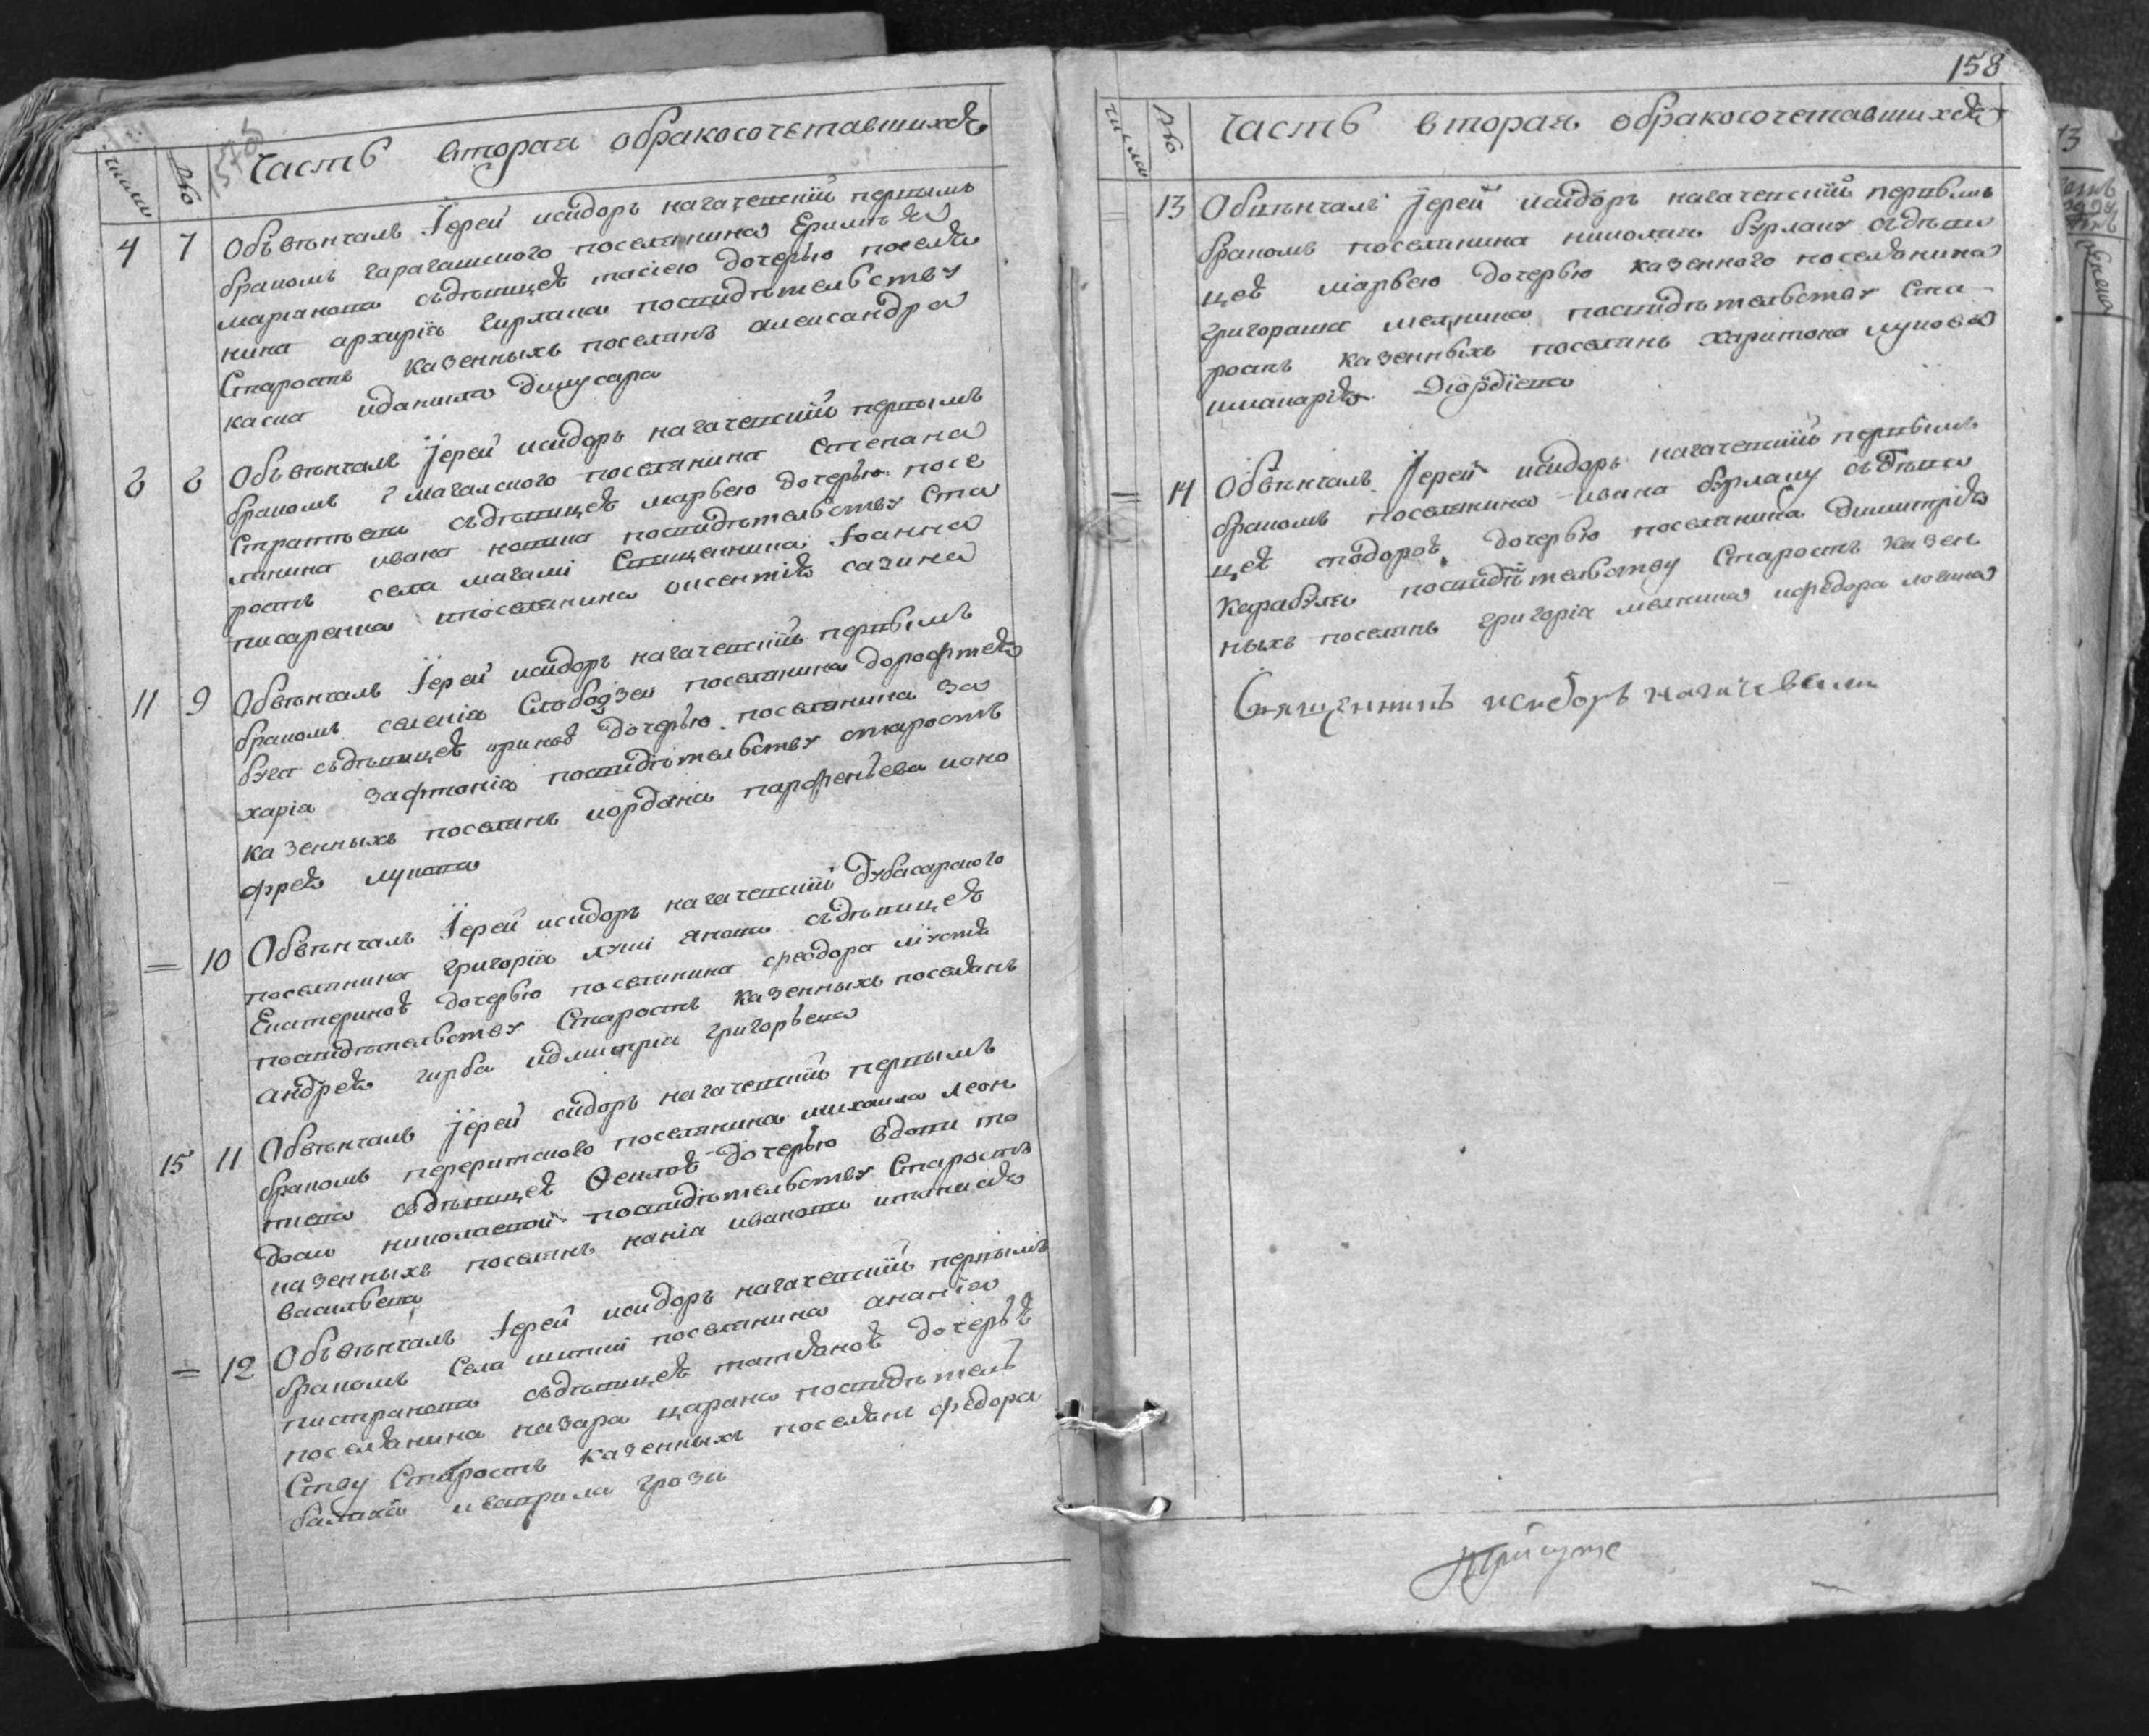 Часть вторая обракосочетавшихся
числи №
4 7 Объвѣнчалъ Іерей исидоръ нагачевскій первымъ
бракомъ гарагашского поселянина Еримѣя
марианова съдѣвицея тасіею дочерью поселя
нина архирія гирлана посвидѣтельству
Старостъ казенныхъ поселянъ александра
касиа иданила
8 8 Объвѣнчалъ Іерей исидоръ нагачевскій первымъ
бракомъ поселянина степана
съдѣвицея марвею дочерью посе
лянина ивана посвидѣтельству Ста
ростъ села Священника Іоанна
писаренка ипоселянина оксентія сазина
11 9 Обвѣнчалъ Іерей исидоръ нагачевскій первымъ
бракомъ селенія Слободзеи поселянина дорофтея
буга съдѣвицея ириноѣ дочерью поселянина за
харія зафтонія посвидѣтельству старостъ
казенныхъ поселянъ иордана парфеньева ионо
фрея лупова
= 10 Обвѣнчалъ Іерей исидоръ нагачевскій дубасарского
поселянина григорія съдѣвицея
Екатериноѣ дочерью поселянина феодора
посвидѣтельству Старостъ казенныхъ поселянъ
андрея гирба идмитрия григорьева
15 11 Обвѣнчалъ Іерей сидоръ нагачевскій первымъ
бракомъ переритского поселянина михаила леон
тиева съдѣвицея Ѳеклоѣ дочерью вдови то
досио николаевой посвидѣтельству Старостъ
казенныхъ поселянъ иванова итанасія
васильева
= 12 Обьвѣнчалъ Іерей исидоръ нагачевскій первымъ
бракомъ Села поселянина ананіа
пистранова съдѣвицея татяноѣ дочерьѣ
поселянина назара царана посвидѣтель
Ству Старостъ казенныхъ поселянъ федора
игаврила грози
158
числи № Часть вторая обракосочетавшихся
= 13 Обвѣнчалъ Іерей исидоръ нагачевскій первымъ
бракомъ поселянина николая бурлаку съдѣви
цеѣ марвею дочерью казенного поселянина
григораша мелника посвидѣтельству Ста-
ростъ казенныхъ поселянъ харитона лупова
= 14 Обвѣнчалъ Іерей исидоръ нагачевскій первымъ
бракомъ поселянина ивана бурлаку съдѣви
цеѣ тодороѣ дочерью поселянина димитрія
карабули посвидѣтельству Старостъ казен
ныхъ поселянъ григорія мелника ифедора
Священникъ исидоръ нагачевски